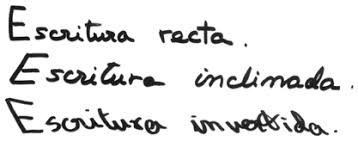 Escritura recta.
Escritura inclinada.
Escritura invertida.